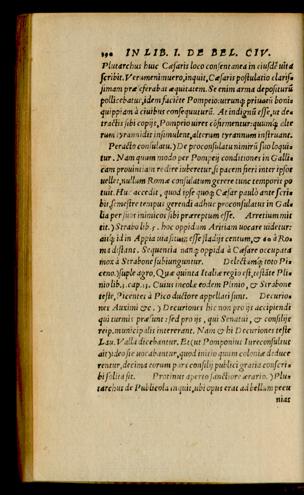 190 IN LIB. I. DE BEL. CIV.
Plutarchus huic Cæsaris loco consentanea in eiusdē uita
scribit. Verumenimuero, inquit, Cæsaris postulatio claris-
simam præ se ferebat æquitatem. Se enim arma depositurū
pollicebatur, idem faciēte Pompeio. utrumq; priuatū boni
quippiam à ciuibus consequuturū. At indignū esse, ut de
tractis sibi copijs, Pompeio uires cōfirmentur: quumq́; alte
rum tyrannidis insimulent, alterum tyrannum instruant.
Peracto consulatu.) De proconsulatu nimirū suo loqui
tur. Nam quum modo per Pompeij conditiones in Galli
cam prouinciam redire iuberetur, si pacem fieri inter ipsos
uellet, nullum Romæ consulatum gerere tunc temporis po
tuit. Huc accedit, quod ipse quoq; Cæsar paulò ante scri-
bit, semestre tempus gerendi adhuc proconsulatus in Gal
lia per suos inimicos sibi præreptum esse. Arretium mit
tit.) Strabo lib. 5. hoc oppidum Aririam uocare uidetur:
aitq́; id in Appia uia situm esse stadijs centum, & 40 à Ro
ma distans. Sequentia uanq; oppida à Cæsare occupata
mox à Strabone subiunguntur. Delectumq; toto Pice-
no.) supple agro, Quæ quinta Italiæ regio est, testāte Pli-
nio lib. 3. cap. 13. Cuius incolæ eodem Plinio, & Strabone
teste, Picentes à Pico ductore appellari sunt. Decurio-
nes Auximi &c.) Decuriones hic non pro ijs accipiendi
qui turmis præsunt: sed pro ijs, qui Senatui, & consilijs
reip. municipalis intererant. Nam & hi Decuriones teste
Lau. Valla dicebantur. Etsi ut Pomponius Iureconsultus
ait, ideo sic uocabantur, quod initio quum coloniæ deduce
rentur, decima eorum pars consilij publici gratia conscri-
bi solita sit. Protinus aperto sanctiore ærario.) Plu-
tarchus de Publicola inquit, ubi opus erat ad bellum pecu
nias